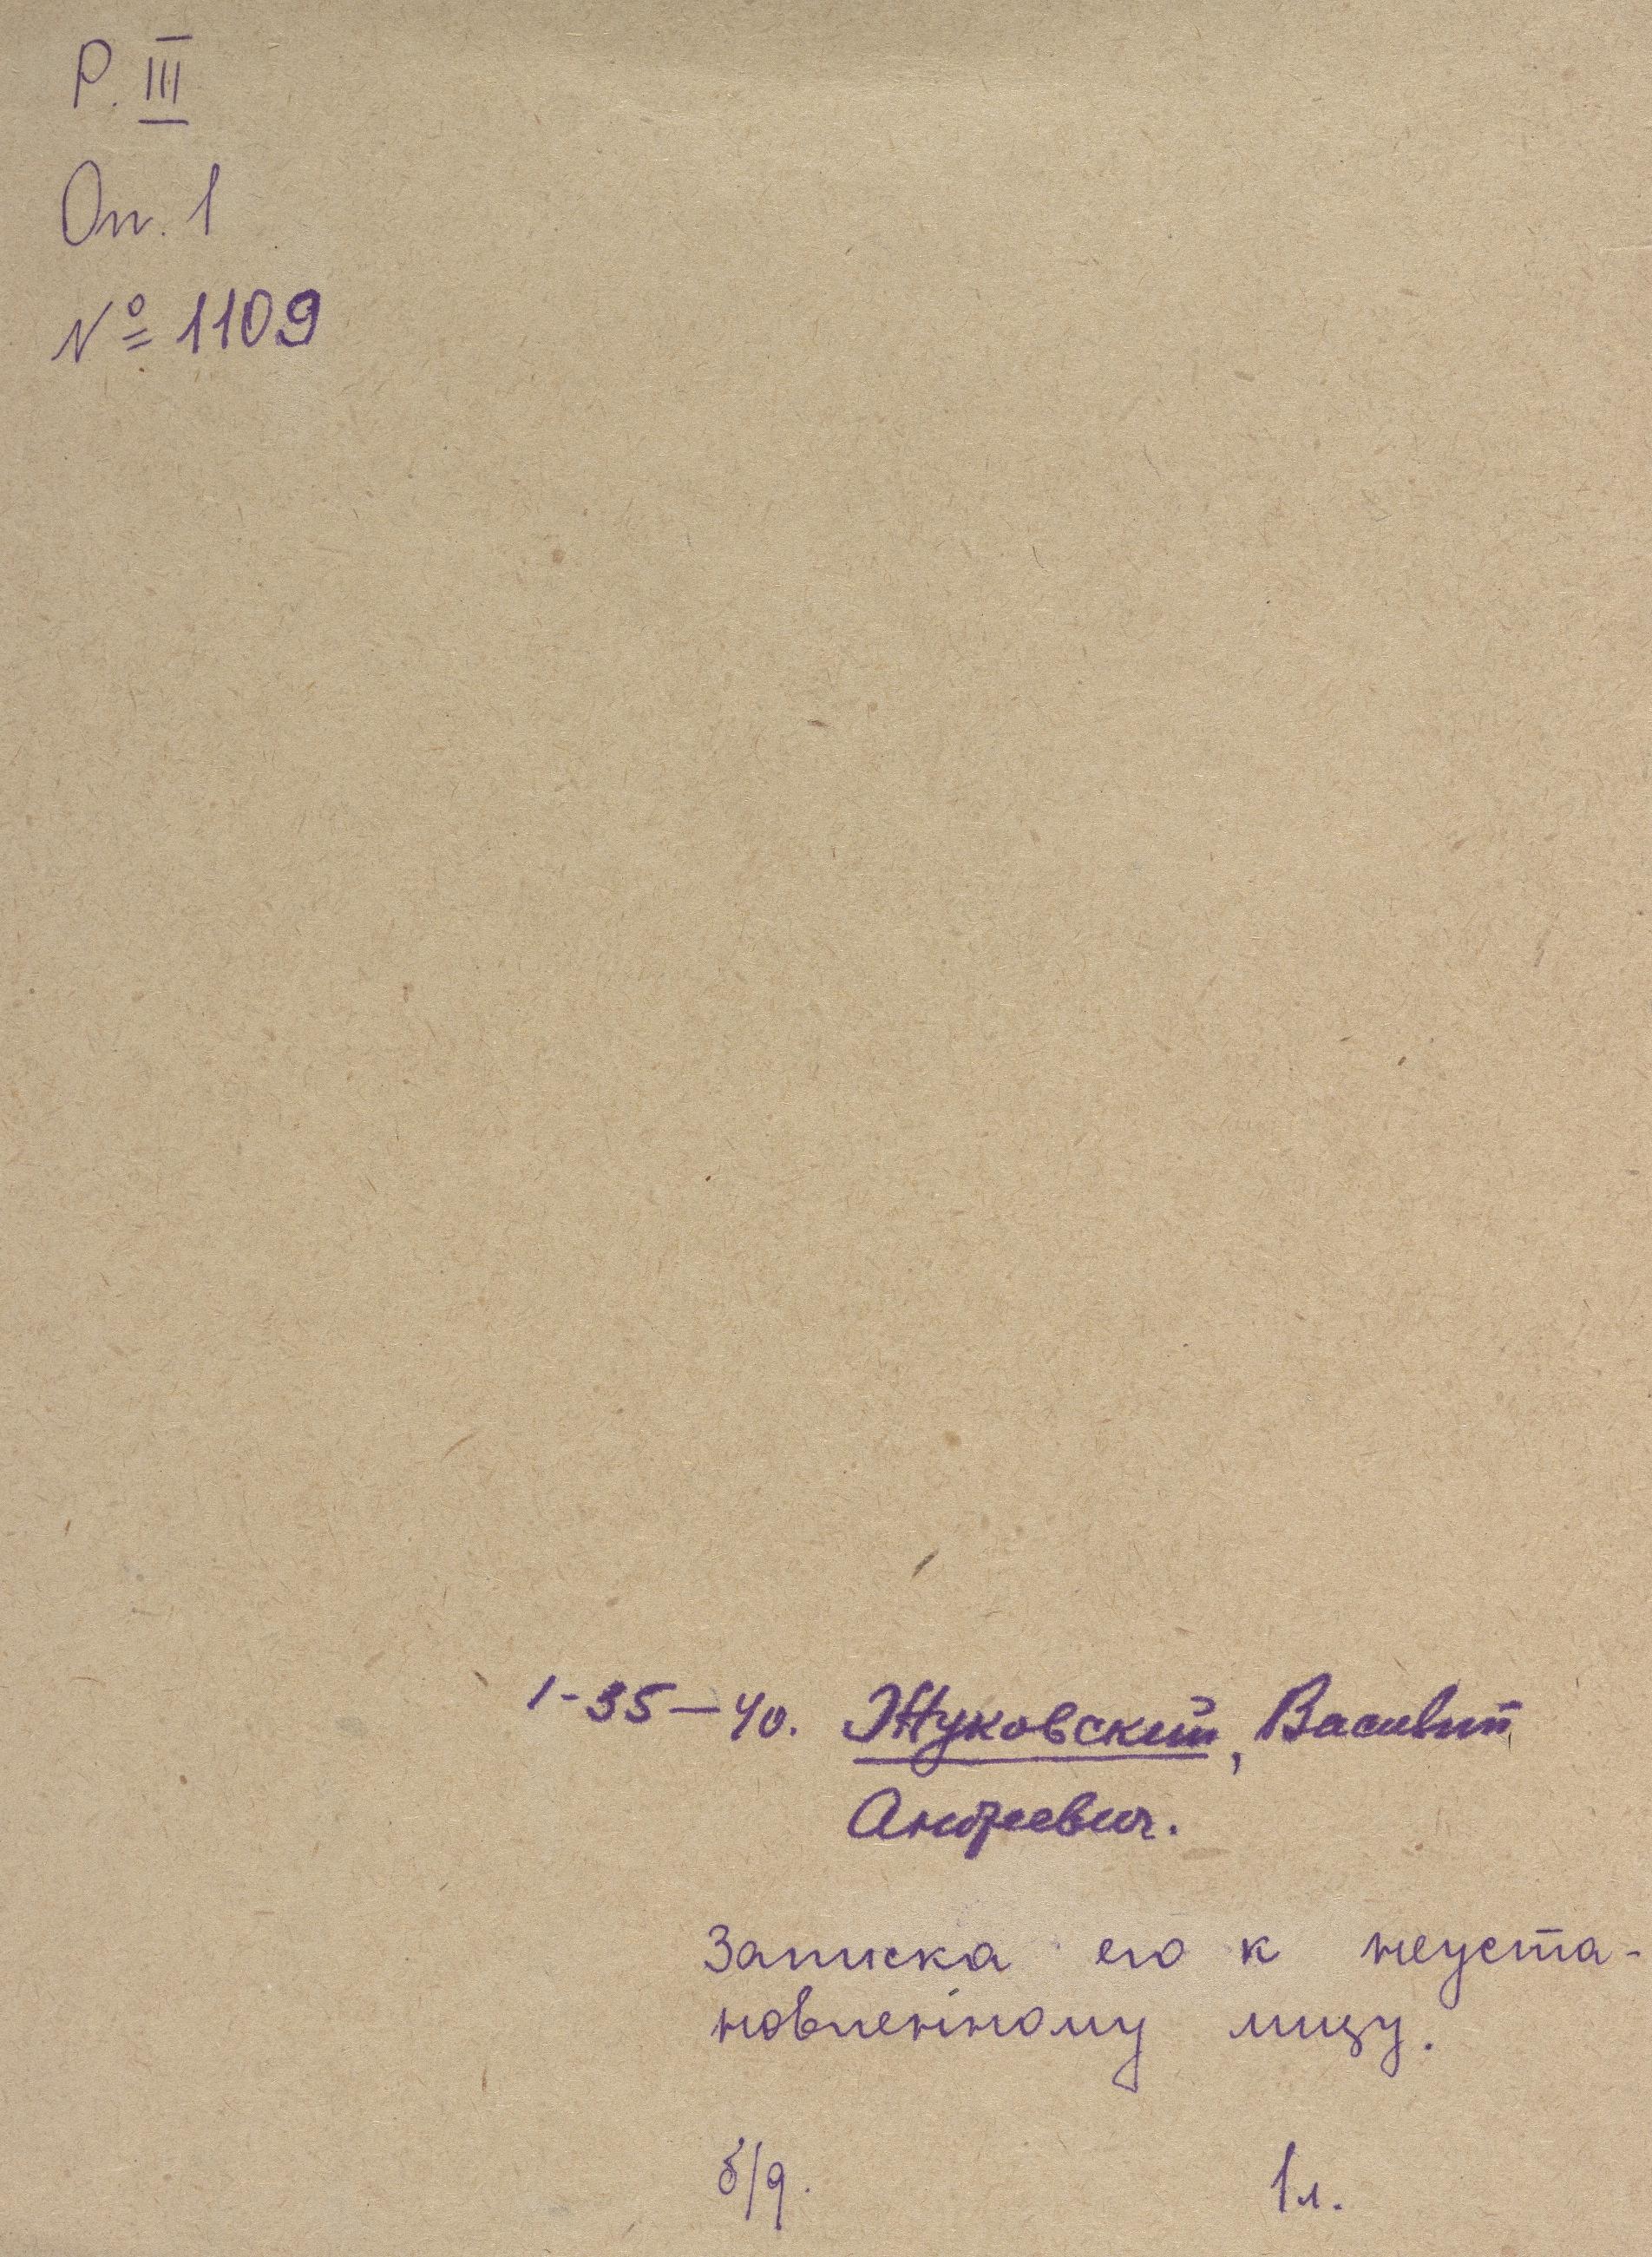 Р. III
Оп. 1
№ 1109
1-35-40. Жуковский, Василий
Андреевич.
Записка его к неуста-
новленному лицу.
б/д. 1 л.